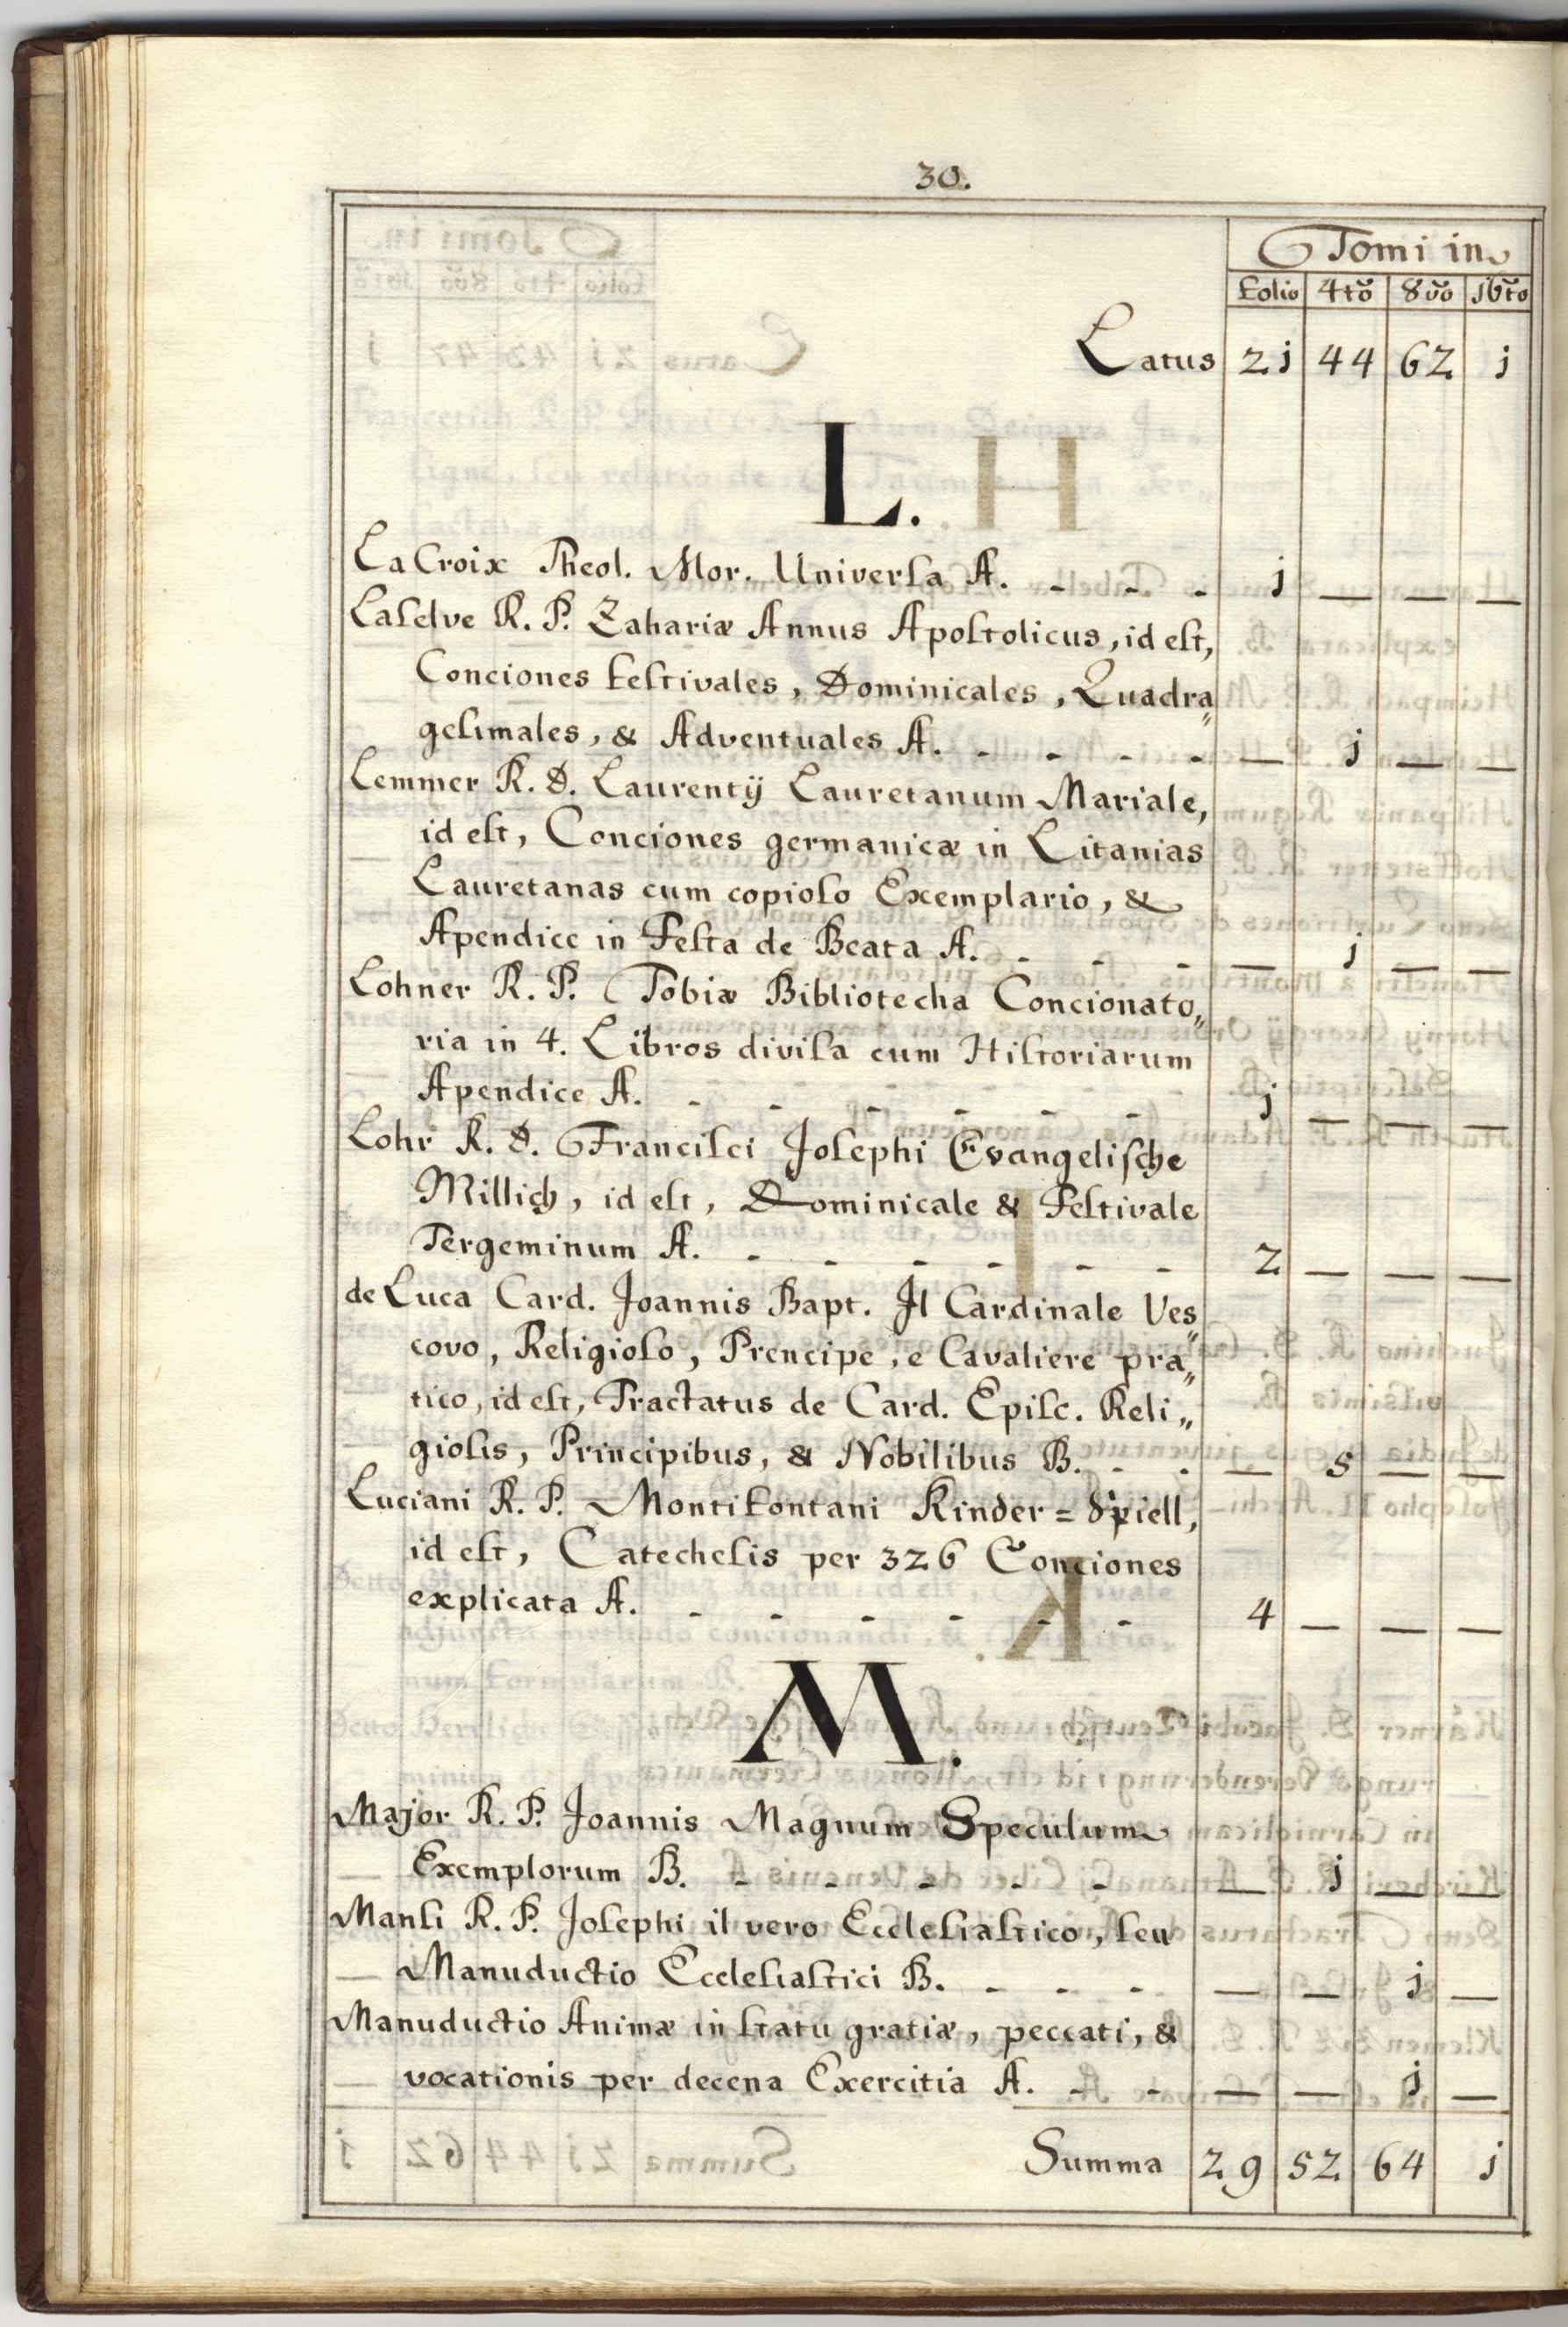 30.
Tomi in
Folio 4tō 8vō 16tō
Latus 2j 44 62 j
L.
La Croix Theol. Mor. Universa A. - - - j — — —
Laselve R. P. Zahariæ Annus Apostolicus, id est,
Conciones Festivales, Dominicales, Quadra„
gesimales, & Adventuales A. - - - - — j — —
Lemmer R. D. Laurentij Lauretanum Mariale,
id est, Conciones germanicæ in Litanias
Lauretanas cum copioso Exemplario, &
Apendice in Festa de Beata A. - - - — j — —
Lohner R. P. Tobiæ Bibliotecha Concionato„
ria in 4. Libros divisa cum Historiarum
Apendice A. - - - - - - j — — —
Lohr R. D. Francisci Josephi Evangelische
Millich, id est, Dominicale & Festivale
Tergeminum A. - - - - - - 2 — — —
de Luca Card. Joannis Bapt. Il Cardinale Ves„
covo, Religioso, Prencipe, e Cavaliere pra„
tico, id est, Tractatus de Card. Episc. Reli„
giosis, Principibus, & Nobilibus B. - - — 5 — —
Luciani R. P. Montifontani Kinder = Spiell,
id est, Catechesis per 326 Conciones
explicata A. - - - - - - 4 — — —
M.
Major R. P. Joannis Magnum Speculum
Exemplorum B. - - - - - — j — —
Mansi R. P. Josephi il vero Ecclesiastico, seu
Manuductio Ecclesiastici B. - - - — — j —
Manuductio Animæ in statu gratiæ, peccati, &
vocationis per decena Exercitia A. - - — — j —
Summa 29 52 64 j